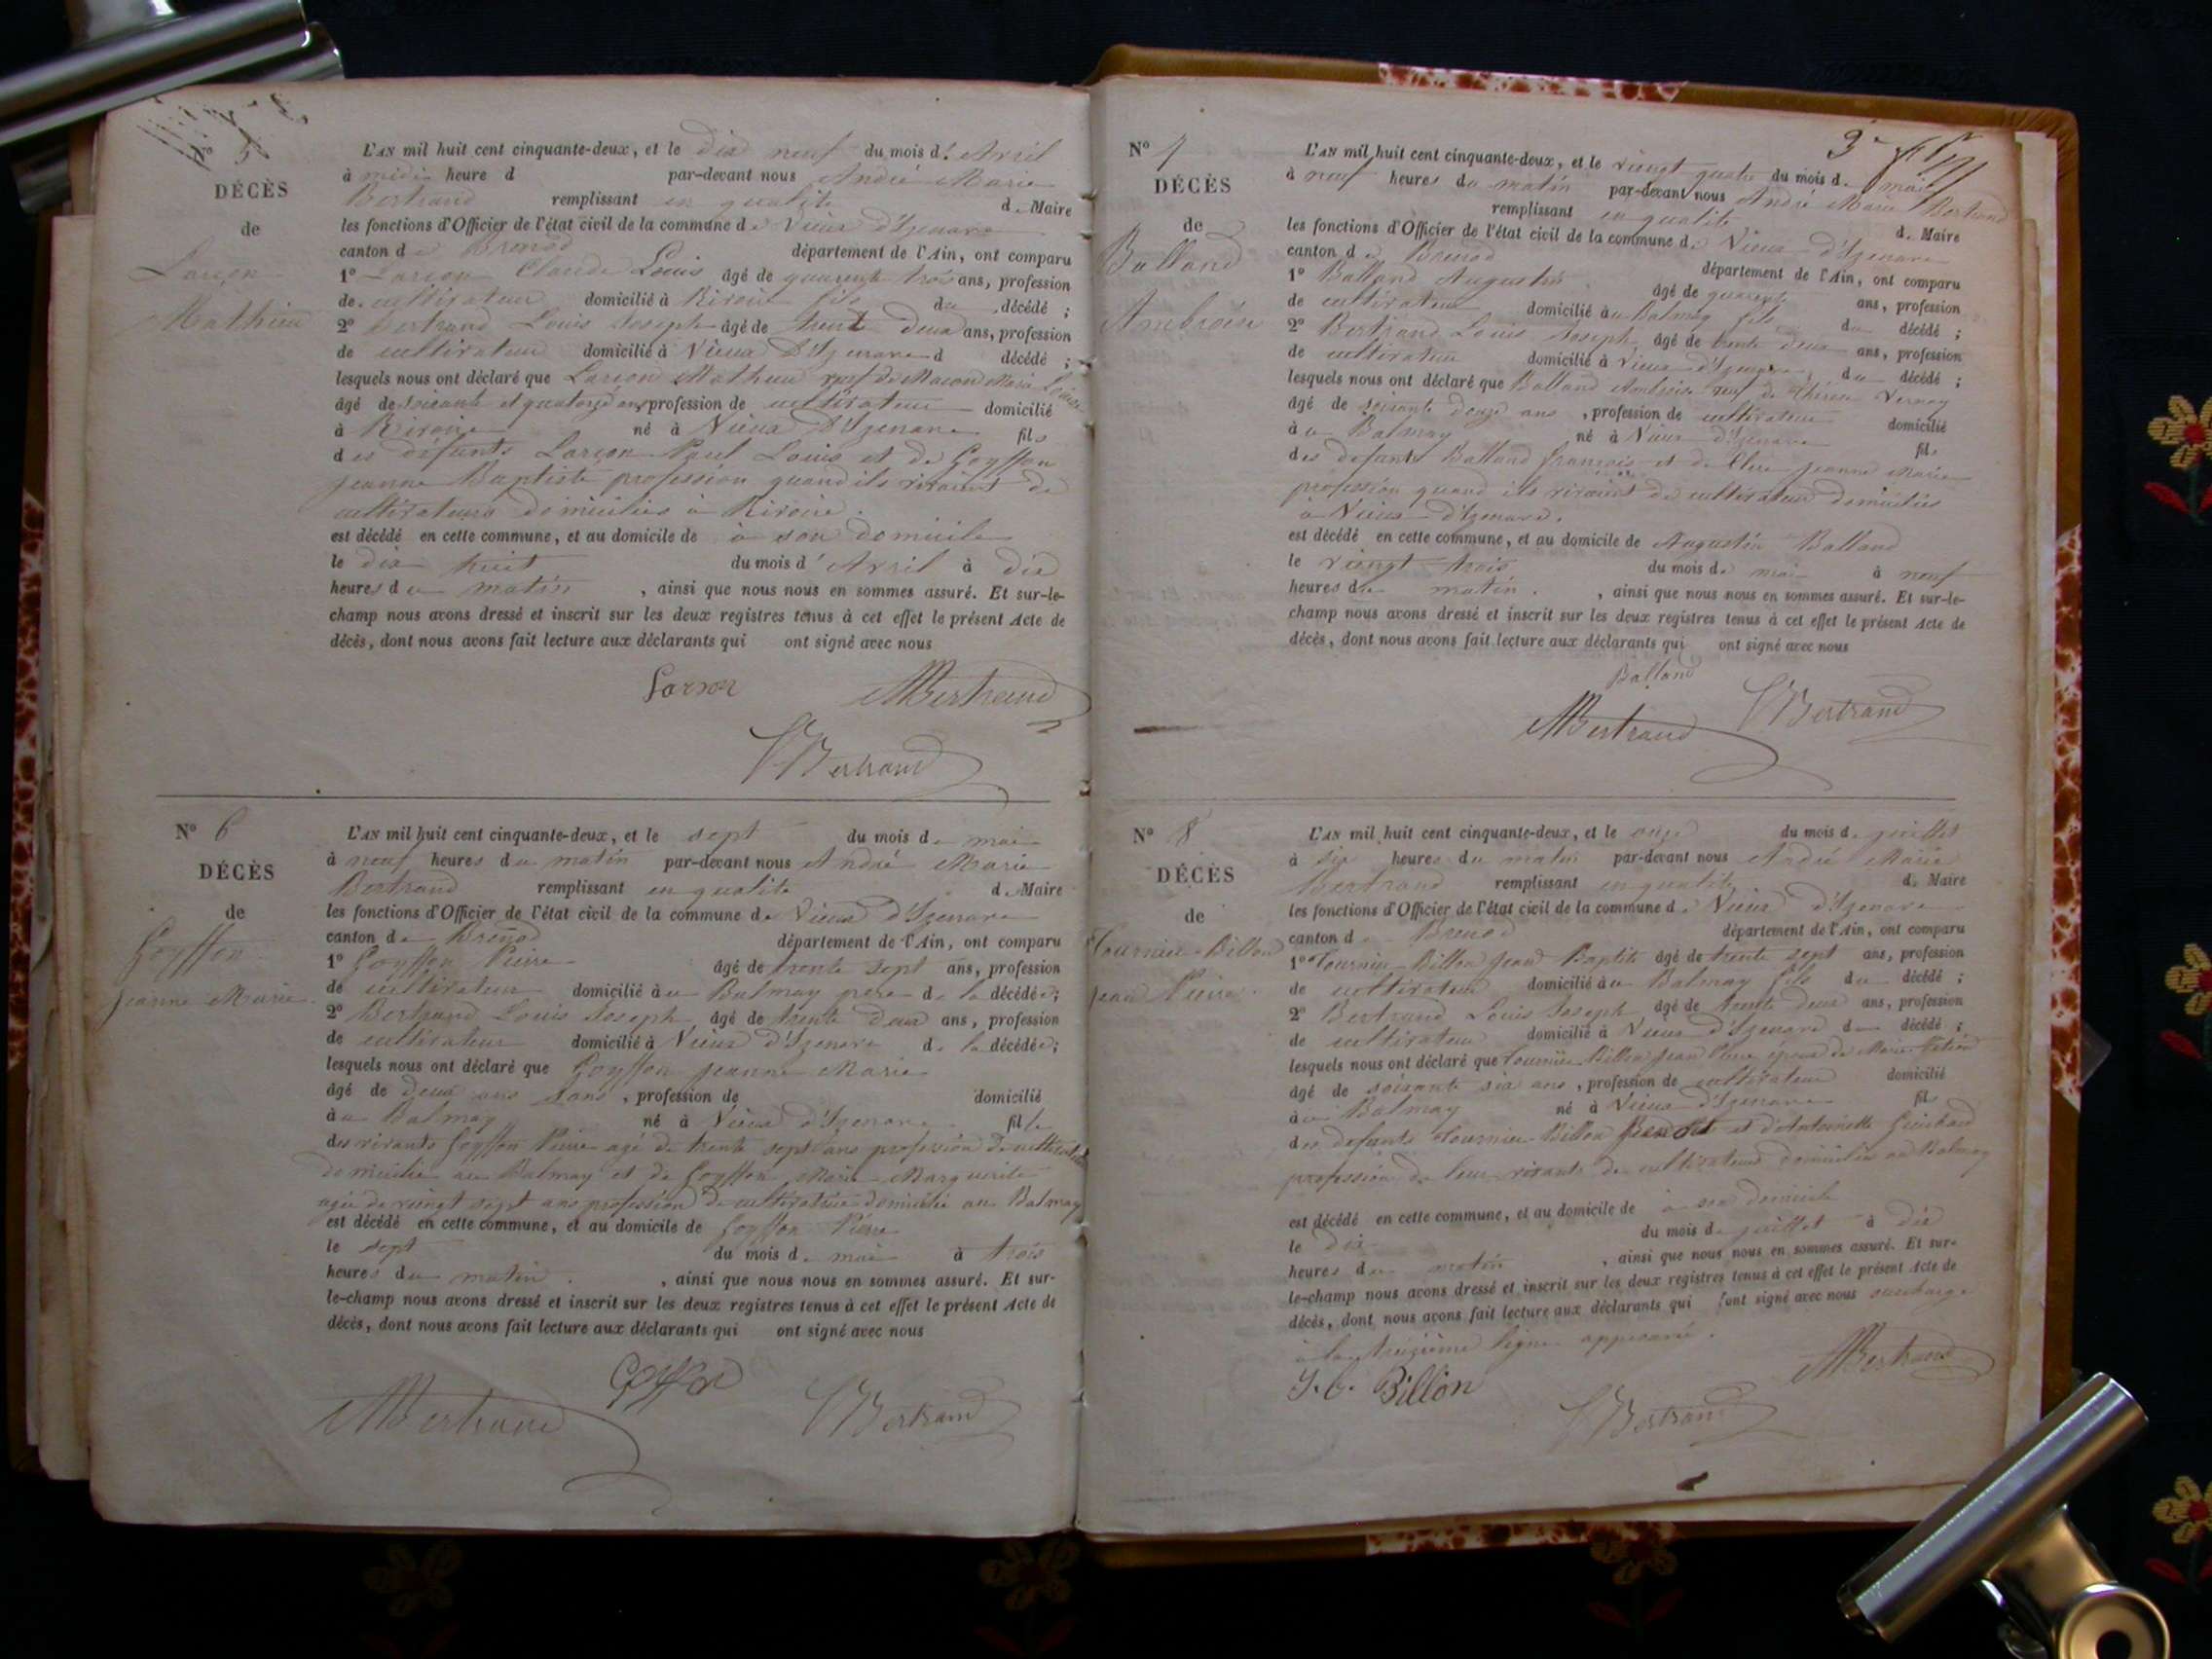 Nº 5
DÉCÈS
de
Larçon
Mathieu
L'AN mil huit cent cinquante-deux, et le dix neuf du mois d'Avril
à midi heure d par-devant nous André Marie
Bertrand remplissant en qualité de Maire
les fonctions d'Officier de l'état civil de la commune de Vieux d'Izenave
canton de Brenod département de l'Ain, ont comparu
1º Larçon Claude Louis âgé de quarente trois ans, profession
de cultivateur domicilié à Kiroire fils du décédé ;
2º Bertrand Louis Joseph âgé de trent deux ans, profession
de cultivateur domicilié à Vieux d'Izenave d décédé ;
lesquels nous ont déclaré que Larçon Mathieu veuf de Macon Marie Louise
âgé de soixante et quatorze ans profession de cultivateur domicilié
à né à Vieux d'Izenave fils
des défunts Larçon Paul Louis et de Goyffon
jeanne Baptiste profession quand ils vivaient de
cultivateurs domiciliés à
est décédé en cette commune, et au domicile de à son domicile
le dix huit du mois d'Avril à dix
heures du matin , ainsi que nous nous en sommes assuré. Et sur-le-
champ nous avons dressé et inscrit sur les deux registres tenus à cet effet le présent Acte de
décès, dont nous avons fait lecture aux déclarants qui ont signé avec nous
Larçon
Bertrand
Bertrand
Nº 6
DÉCÈS
de
Goyffon
Jeanne Marie
L'AN mil huit cent cinquante-deux, et le sept du mois de mai
à neuf heures du matin par-devant nous André Marie
Bertrand remplissant en qualité de Maire
les fonctions d'Officier de l'état civil de la commune de Vieux d'Izenave
canton de Brenod département de l'Ain, ont comparu
1º Goyffon Pierre âgé de trente sept ans, profession
de cultivateur domicilié au Balmay père de la décédée;
2º Bertrand Louis Joseph âgé de trente deux ans, profession
de cultivateur domicilié à Vieux d'Izenave de la décédée;
lesquels nous ont déclaré que Goyffon jeanne Marie
âgé de deux ans sans , profession de domicilié
au Balmay né à Vieux d'Izenave fille
des vivants Goyffon Pierre agé de trente sept ans profession de cultivateur
domicilié au Balmay et de Goyffon Marie Marguerite
agée de vingt sept ans profession de cultivatrice domiciliée au Balmay
est décédé en cette commune, et au domicile de Goyffon Pierre
le sept du mois de mai à trois
heures du matin , ainsi que nous nous en sommes assuré. Et sur-
le-champ nous avons dressé et inscrit sur les deux registres tenus à cet effet le présent Acte de
décès, dont nous avons fait lecture aux déclarants qui ont signé avec nous
Goyffon
Bertrand
Bertrand
Nº 7
DÉCÈS
de
Balland
Ambroise
L'AN mil huit cent cinquante-deux, et le vingt quatre du mois de mai
à neuf heures du matin par-devant nous André Marie Bertrand
remplissant en qualité de Maire
les fonctions d'Officier de l'état civil de la commune de Vieux d'Izenave
canton de Brenod département de l'Ain, ont comparu
1º Balland Augustin âgé de quarente ans, profession
de cultivateur domicilié au Balmay fils du décédé ;
2º Bertrand Louis Joseph âgé de trente deux ans, profession
de cultivateur domicilié à Vieux d'Izenave du décédé ;
lesquels nous ont déclaré que Balland Ambroise veuf de
âgé de soixante douze ans , profession de cultivateur domicilié
au Balmay né à Vieux d'Izenave fils
des défunts Balland françois et de Jeanne Marie
profession quand ils vivaient de cultivateur domiciliés
à Vieux d'Izenave.
est décédé en cette commune, et au domicile de Augustin Balland
le vingt trois du mois de mai à neuf
heures du matin , ainsi que nous nous en sommes assuré. Et sur-le-
champ nous avons dressé et inscrit sur les deux registres tenus à cet effet le présent Acte de
décès, dont nous avons fait lecture aux déclarants qui ont signé avec nous
Balland
Bertrand
Bertrand
Nº 8
DÉCÈS
de
Tournier-Billon
jean Pierre
L'AN mil huit cent cinquante-deux, et le onze du mois de juillet
à six heures du matin par-devant nous André Marie
Bertrand remplissant en qualité de Maire
les fonctions d'Officier de l'état civil de la commune de Vieux d'Izenave
canton d Brenod département de l'Ain, ont comparu
1º Tournier-Billon Jean Baptite âgé de trente sept ans, profession
de cultivateur domicilié au Balmay fils du décédé ;
2º Bertrand Louis Joseph âgé de trente deux ans, profession
de cultivateur domicilié à Vieux d'Izenave du décédé ;
lesquels nous ont déclaré que Tournier-Billon jean Pierre époux de Marie
âgé de soixante six ans , profession de cultivateur domicilié
au Balmay né à Vieux d'Izenave fils
des défunts Tournier-Billon et d'Antoinette Guichard
profession de leur vivants de cultivateurs domiciliés au Balmay
est décédé en cette commune, et au domicile de à son domicile
le dix du mois de juillet à dix
heures du matin , ainsi que nous nous en sommes assuré. Et sur-
le-champ nous avons dressé et inscrit sur les deux registres tenus à cet effet le présent Acte de
décès, dont nous avons fait lecture aux déclarants qui ont signé avec nous surcharge
à la treizième ligne approuvée.
J. b. Billon
Bertrand
Bertrand